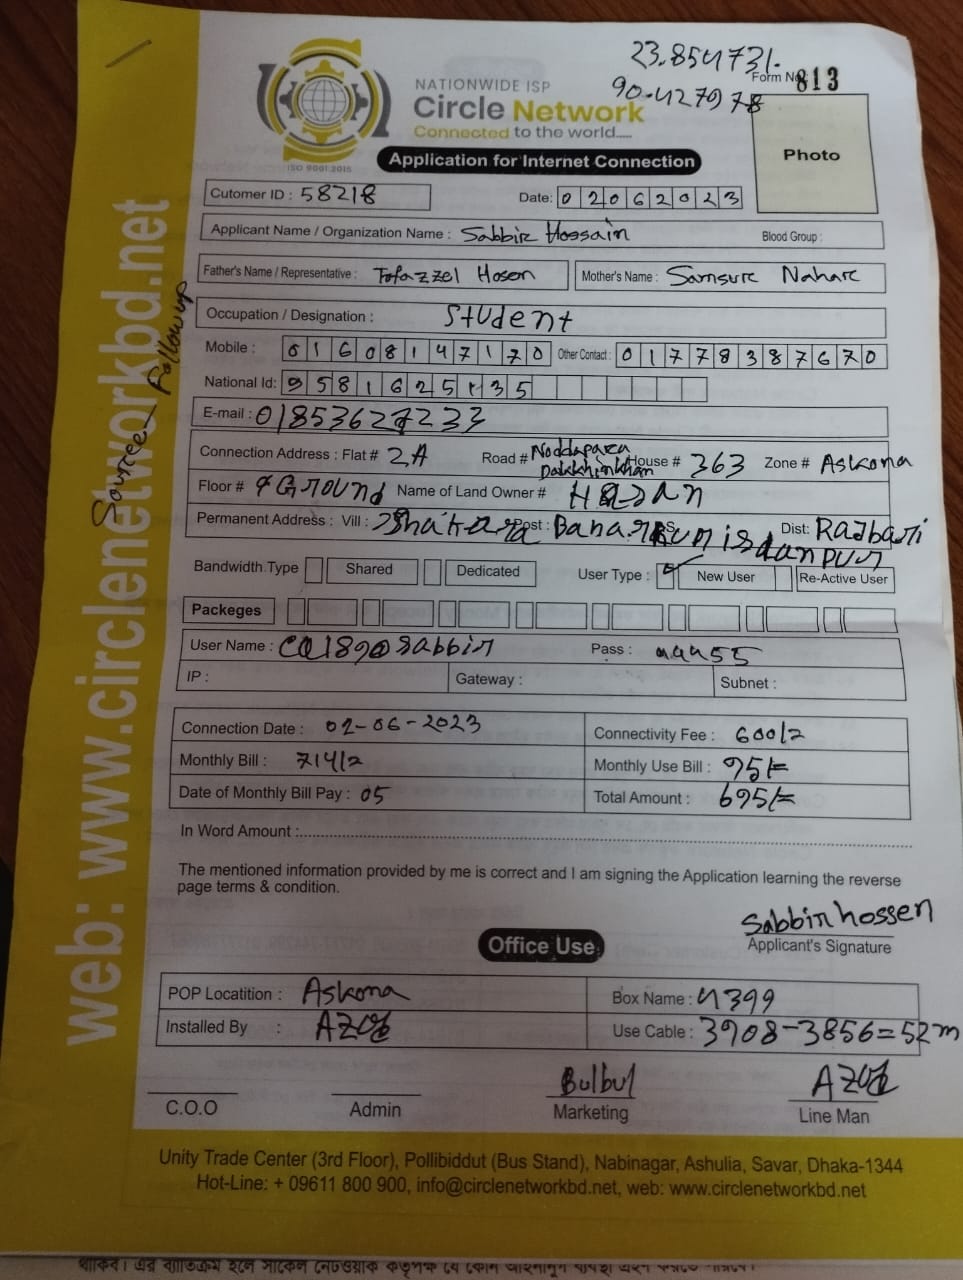 23.854731.
90.427978
Form No: 813
NATIONWIDE ISP
Circle Network
Connected to the world.....
ISO 9001:2015
Application for Internet Connection
Photo
Cutomer ID : 58218
Date: 02062023
Applicant Name / Organization Name : Sabbir Hossain
Blood Group :
Father's Name / Representative : Tofazzel Hosen
Mother's Name : Samsure Nahare
Occupation / Designation : Student
Mobile : 01608147170
Other Contact : 01778387670
National Id: 9581625135
E-mail : 01853627233
Connection Address : Flat # 2A Road # Noddapara Dakkhinkhan House # 363 Zone # Askona
Floor # Ground Name of Land Owner # Hasan
Permanent Address : Vill : Post : Dist: Rajbari
Bandwidth Type Shared Dedicated User Type : New User Re-Active User
Packeges
User Name : Pass : 44455
IP : Gateway : Subnet :
Connection Date : 02-06-2023
Connectivity Fee : 600/=
Monthly Bill : 714/=
Monthly Use Bill : 95/=
Date of Monthly Bill Pay : 05
Total Amount : 695/=
In Word Amount :
The mentioned information provided by me is correct and I am signing the Application learning the reverse
page terms & condition.
Sabbir hossen
Applicant's Signature
Office Use
POP Locatition : Askona
Box Name : 4399
Installed By :
Use Cable : 3908-3856=52m
Bulbul
C.O.O
Admin
Marketing
Line Man
Unity Trade Center (3rd Floor), Pollibiddut (Bus Stand), Nabinagar, Ashulia, Savar, Dhaka-1344
Hot-Line: + 09611 800 900, info@circlenetworkbd.net, web: www.circlenetworkbd.net
web: www.circlenetworkbd.net
Source- Followup